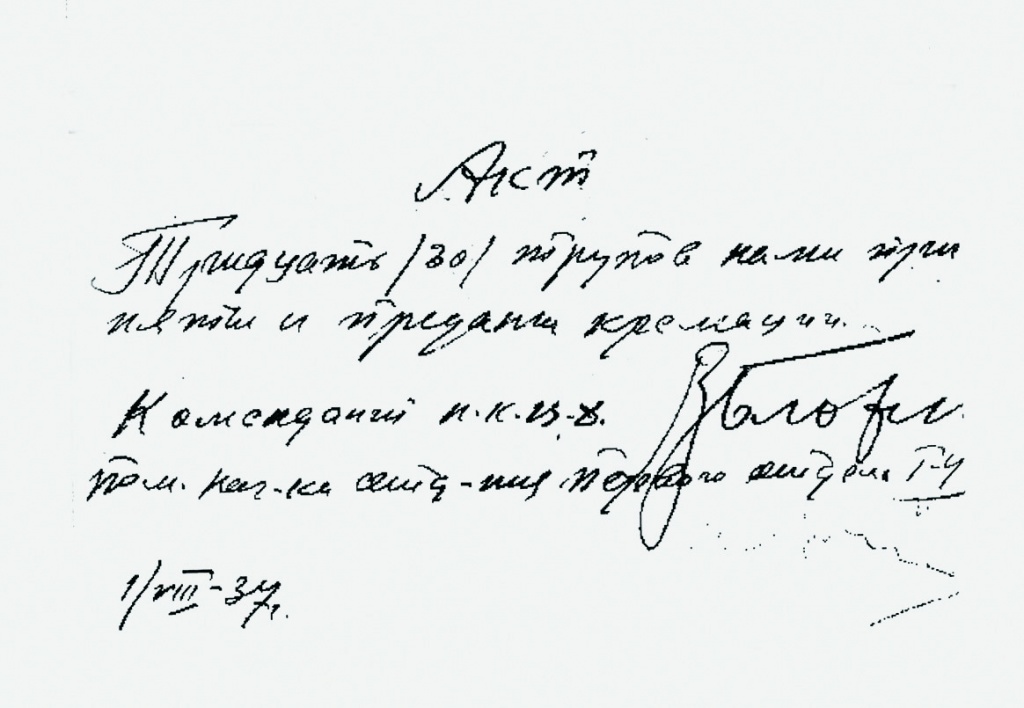 Акт
Тридцать /30/ трупов нами при
няты и преданы кремации.
Комендант н.к.в.д.
пом. нач-ка отд-ния Первого отдела Г-У
1/VIII-37г.